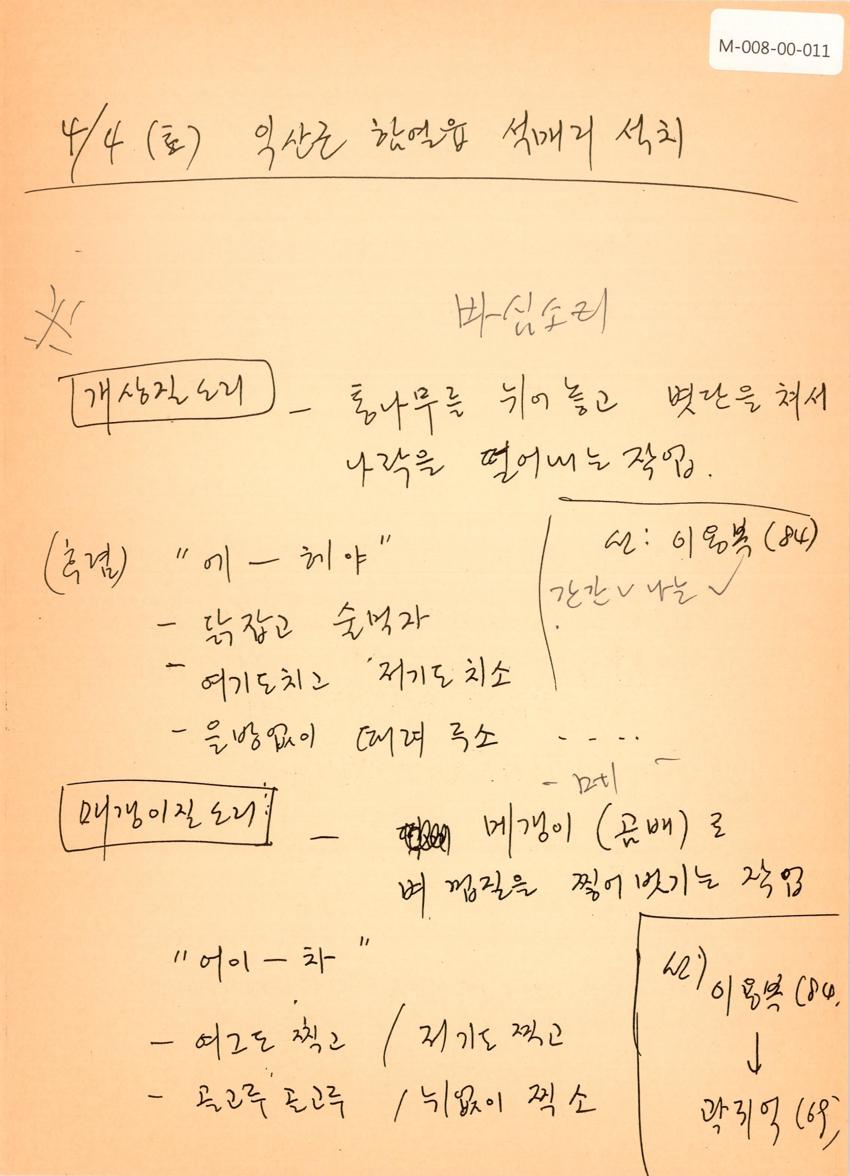 M-008-00-011
4/4 (토) 익산군 함열읍 석매리 석치
※ 바심소리
개상질소리 - 통나무를 뉘어 놓고 볏단을 쳐서
나락을 떨어내는 작업.
선: 이용복 (84)
간간 ✓ 나눔 ✓
(흑점) "에 — 헤야"
- 닭잡고 술먹자
- 여기도치고 저기도 치소
- 을방없이 때려 주소 - - · ·
- 메 -
매갱이질소리: - 메갱이 (곰배) 로
벼 껍질을 찧어 벗기는 작업
"어이 — 차"
선) 이용복 (84.
↓
곽휘억 (69)
- 여그도 찍고 / 저기도 찍고
- 골고루 골고루 / 뉘없이 찍소